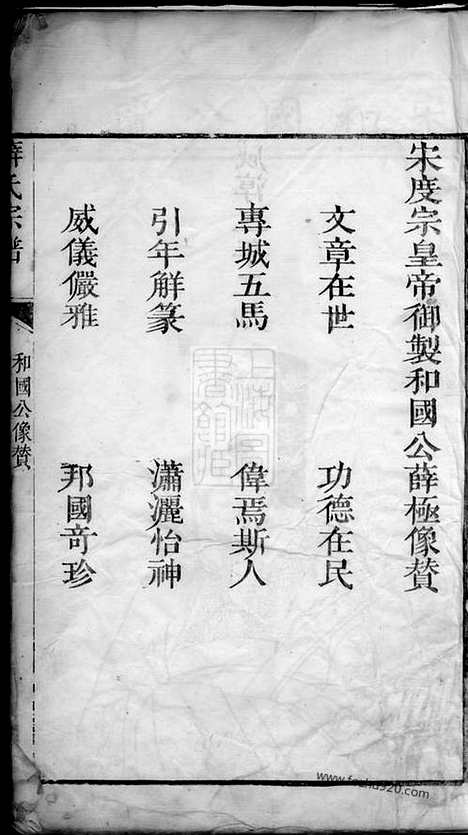 宋度宗皇帝御製和國公薛極像贊
文章在世 功德在民
專城五馬 偉焉斯人
引年解篆 瀟灑怡神
威儀儼雅 邦國奇珍
薛氏宗譜
和國公像贊
www.fozhu920.com